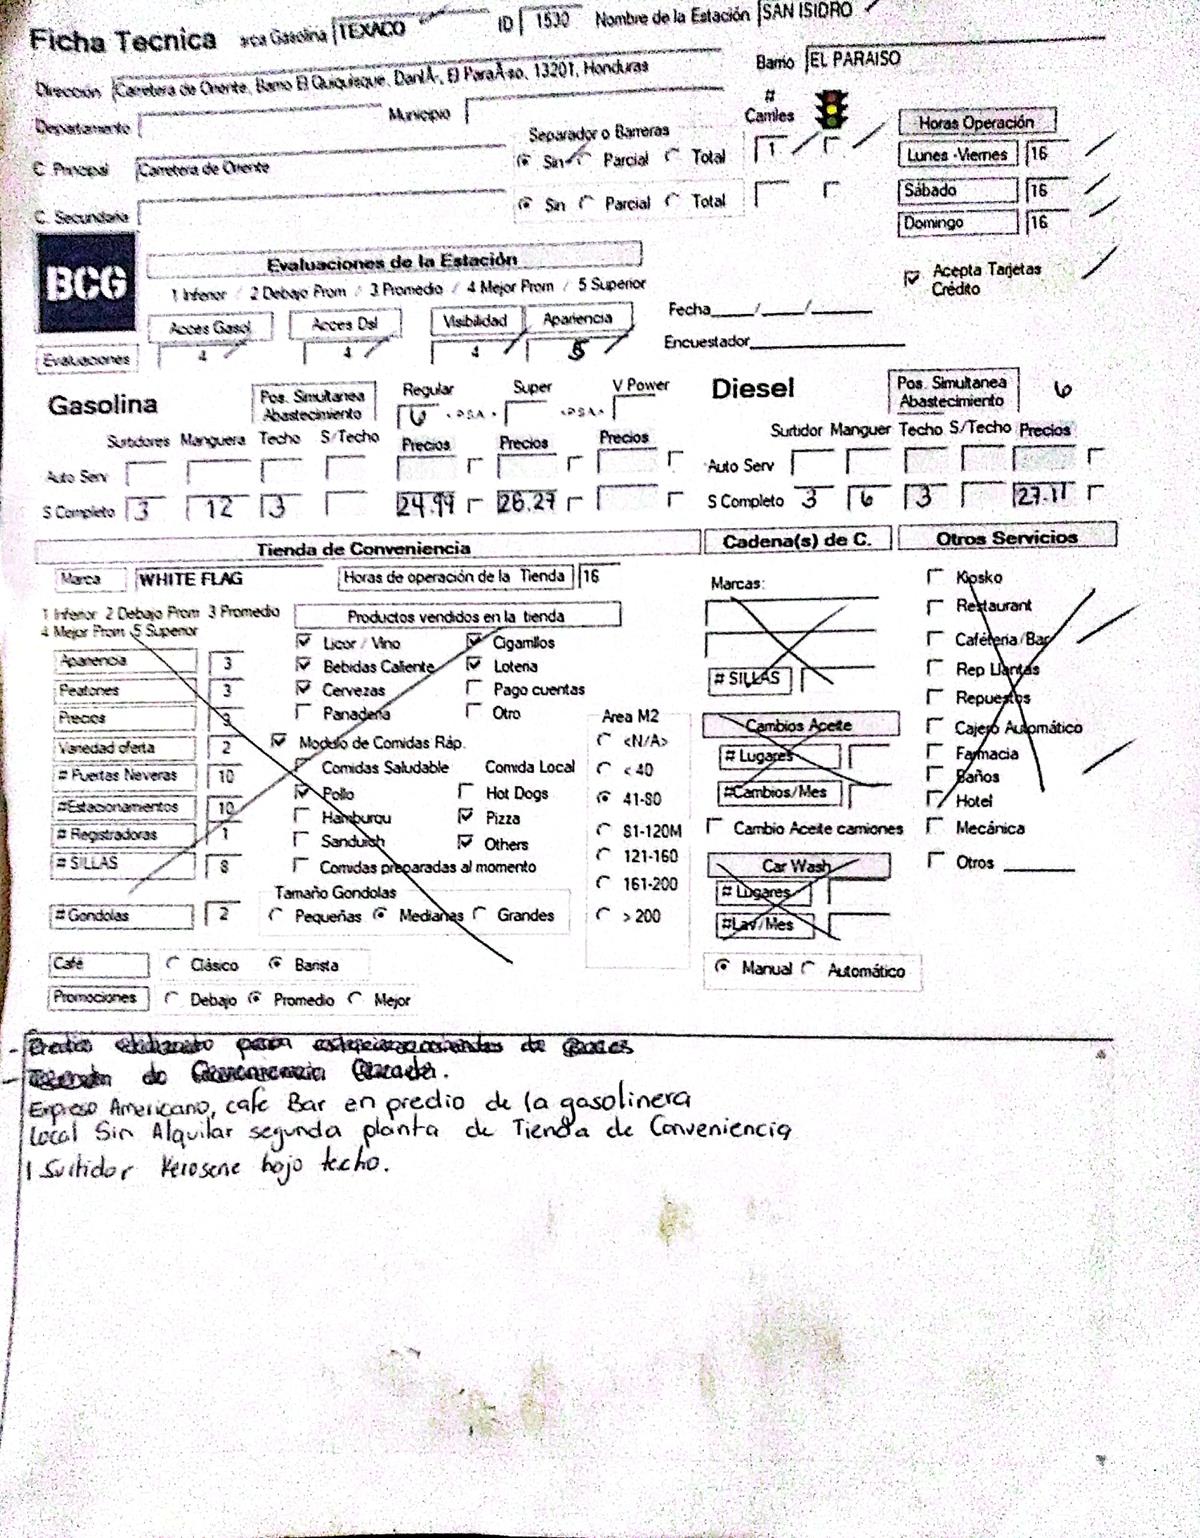 Ficha Tecnica arca Gasolina TEXACO ID 1530 Nombre de la Estación SAN ISIDRO
Dirección Carretera de Oriente, Barrio El Quiquisque, DanlÃ-, El ParaÃso, 13201, Honduras Barrio EL PARAISO
Departamento Municipio # Carriles Horas Operación
Separador o Barreras
C. Principal Carretera de Oriente Sin Parcial Total 1 Lunes -Viernes 16
C. Secundaria Sin Parcial Total Sábado 16
Domingo 16
BCG
Evaluaciones de la Estación
1 Inferior / 2 Debajo Prom / 3 Promedio / 4 Mejor Prom / 5 Superior
Acepta Tarjetas Crédito
Acces Gasol Acces Dsl Visibilidad Apariencia Fecha____/____/______
Evaluaciones 4 4 4 5 Encuestador
Gasolina Pos. Simultanea Abastecimiento Regular 6 <PSA> Super <PSA> V Power
Diesel Pos. Simultanea Abastecimiento 6
Surtidores Manguera Techo S/Techo Precios Precios Precios
Surtidor Manguer Techo S/Techo Precios
Auto Serv Auto Serv
S Completo 3 12 3 24.99 26.27 S Completo 3 6 3 27.11
Tienda de Conveniencia Cadena(s) de C. Otros Servicios
Marca WHITE FLAG Horas de operación de la Tienda 16 Marcas: Kiosko
1 Inferior 2 Debajo Prom 3 Promedio
4 Mejor Prom 5 Superior
Productos vendidos en la tienda Restaurant
Licor / Vino Cigarrillos Cafétería/Bar
Apariencia 3 Bebidas Caliente Loteria # SILLAS Rep Llantas
Peatones 3 Cervezas Pago cuentas Repuestos
Precios 3 Panaderia Otro Area M2 Cambios Aceite Cajero Automático
Variedad oferta 2 Modulo de Comidas Ráp. <N/A> # Lugares Farmacia
# Puertas Neveras 10 Comidas Saludable Comida Local < 40 Baños
#Estacionamientos 10 Pollo Hot Dogs 41-80 #Cambios/Mes Hotel
# Registradoras 1 Hamburqu Pizza 81-120M Cambio Aceite camiones Mecánica
# SILLAS 8 Sanduich Others 121-160 Car Wash Otros
Comidas preparadas al momento 161-200 # Lugares
Tamaño Gondolas
# Gondolas 2 Pequeñas Medianas Grandes > 200 #Lav/Mes
Café Clásico Barista Manual Automático
Promociones Debajo Promedio Mejor
Expreso Americano, cafe Bar en predio de la gasolinera
Local Sin Alquilar segunda planta de Tienda de Conveniencia
1 Surtidor Kerosene bajo techo.